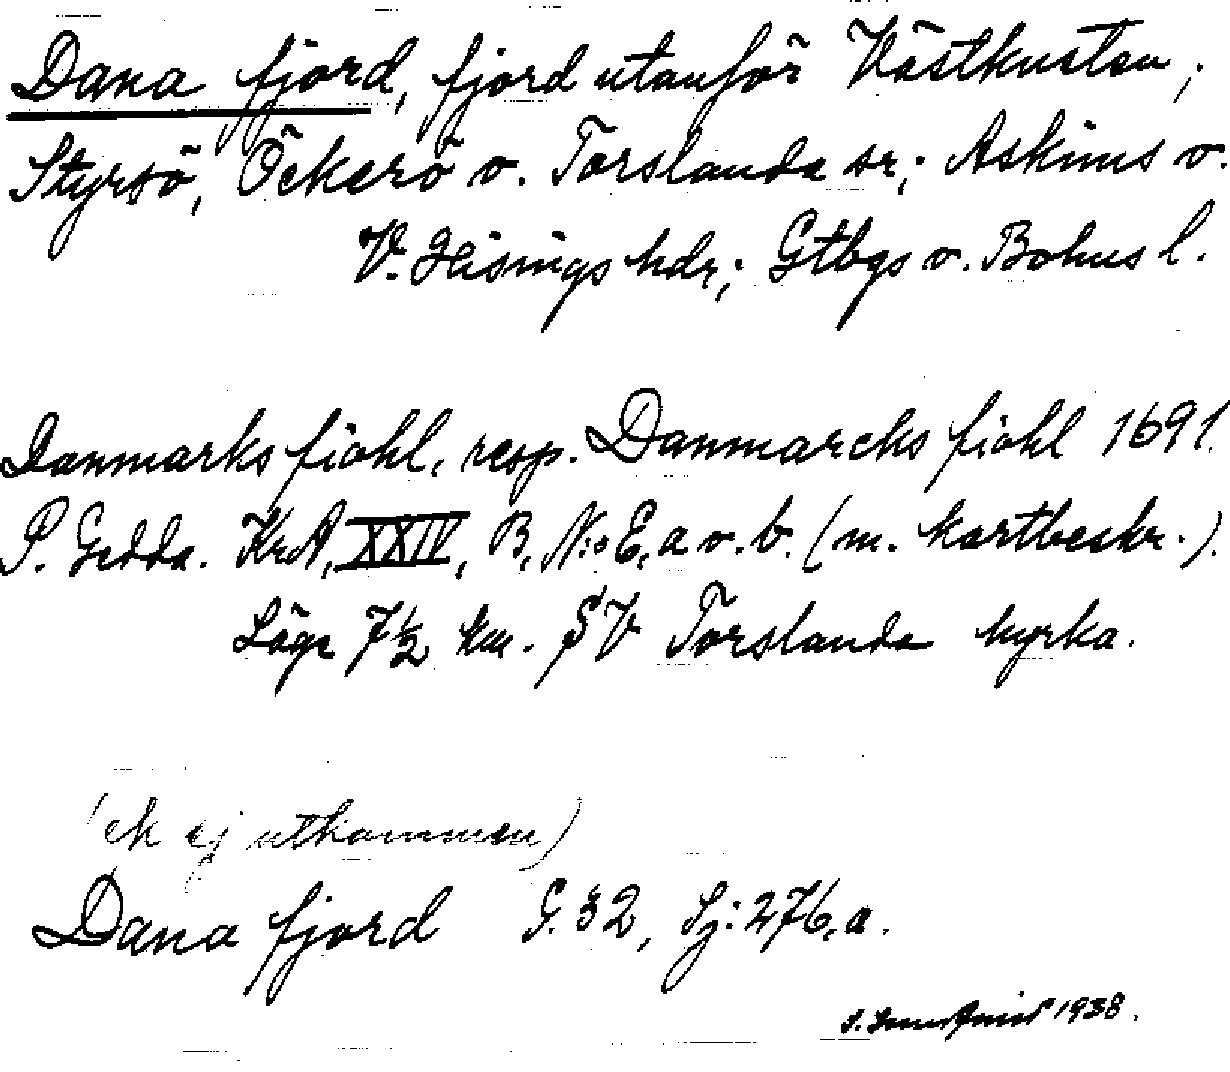 Dana fjord, fjord utanför Västkusten;
Styrsö, Öckerö o. Torslanda sr; Askims o.
V. Hisings hdr; Gtbgs o. Bohus l.
Danmarks fiohl, resp. Danmarcks fiohl 1691.
P. Gedda. KrA, XXIV, B, N:o E, a o. b. (m. kartbeskr.).
Läge 7 1/2 km. SV Torslanda kyrka.
(ek ej utkommen)
Dana fjord G. 32, Sj: 276, a.
1938.